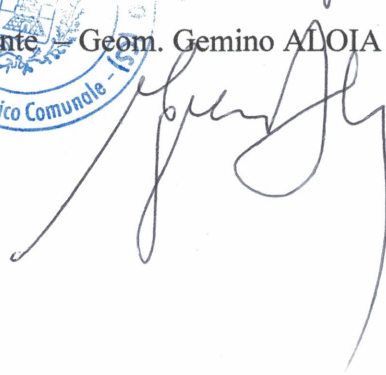 nte – Geom. Gemino ALOIA
ico Comunale - IS